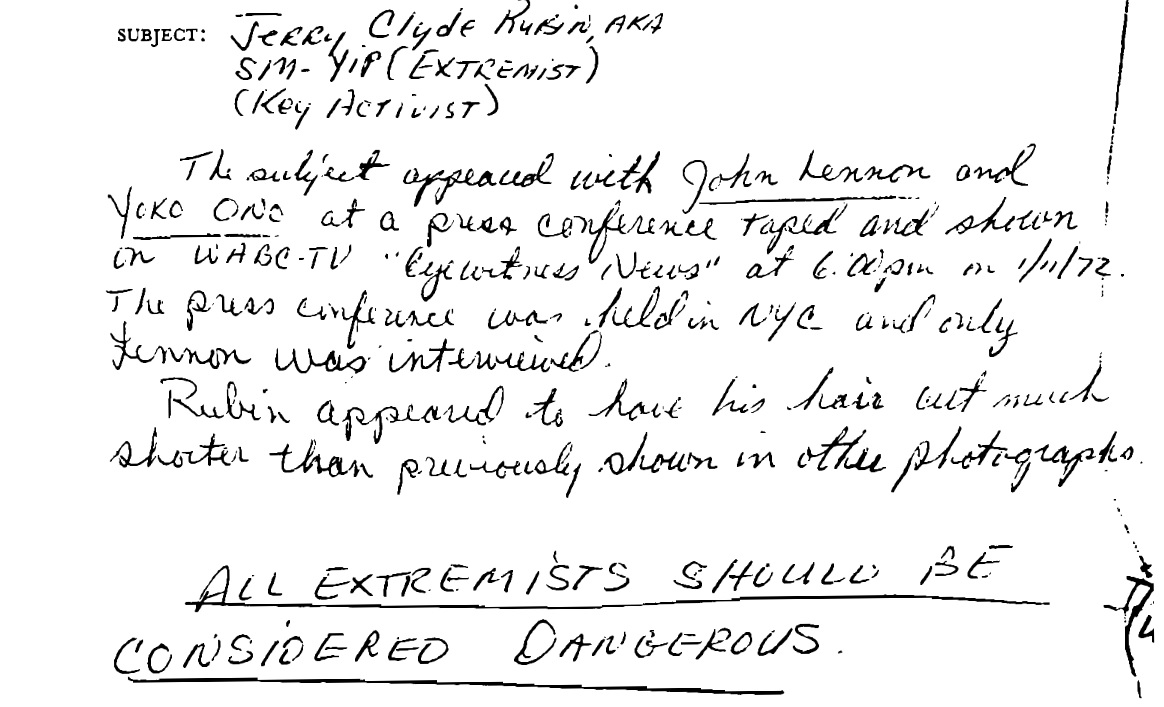 SUBJECT: Jerry Clyde Rubin, AKA
SM-YIP (EXTREMIST)
(Key Activist)
The subject appeared with John Lennon and
YOKO ONO at a press conference taped and shown
on WABC-TV "Eyewitness News" at 6:00pm on 1/11/72.
The press conference was held in NYC and only
Lennon was interviewed.
Rubin appeared to have his hair cut much
shorter than previously shown in other photographs.
ALL EXTREMISTS SHOULD BE
CONSIDERED DANGEROUS.